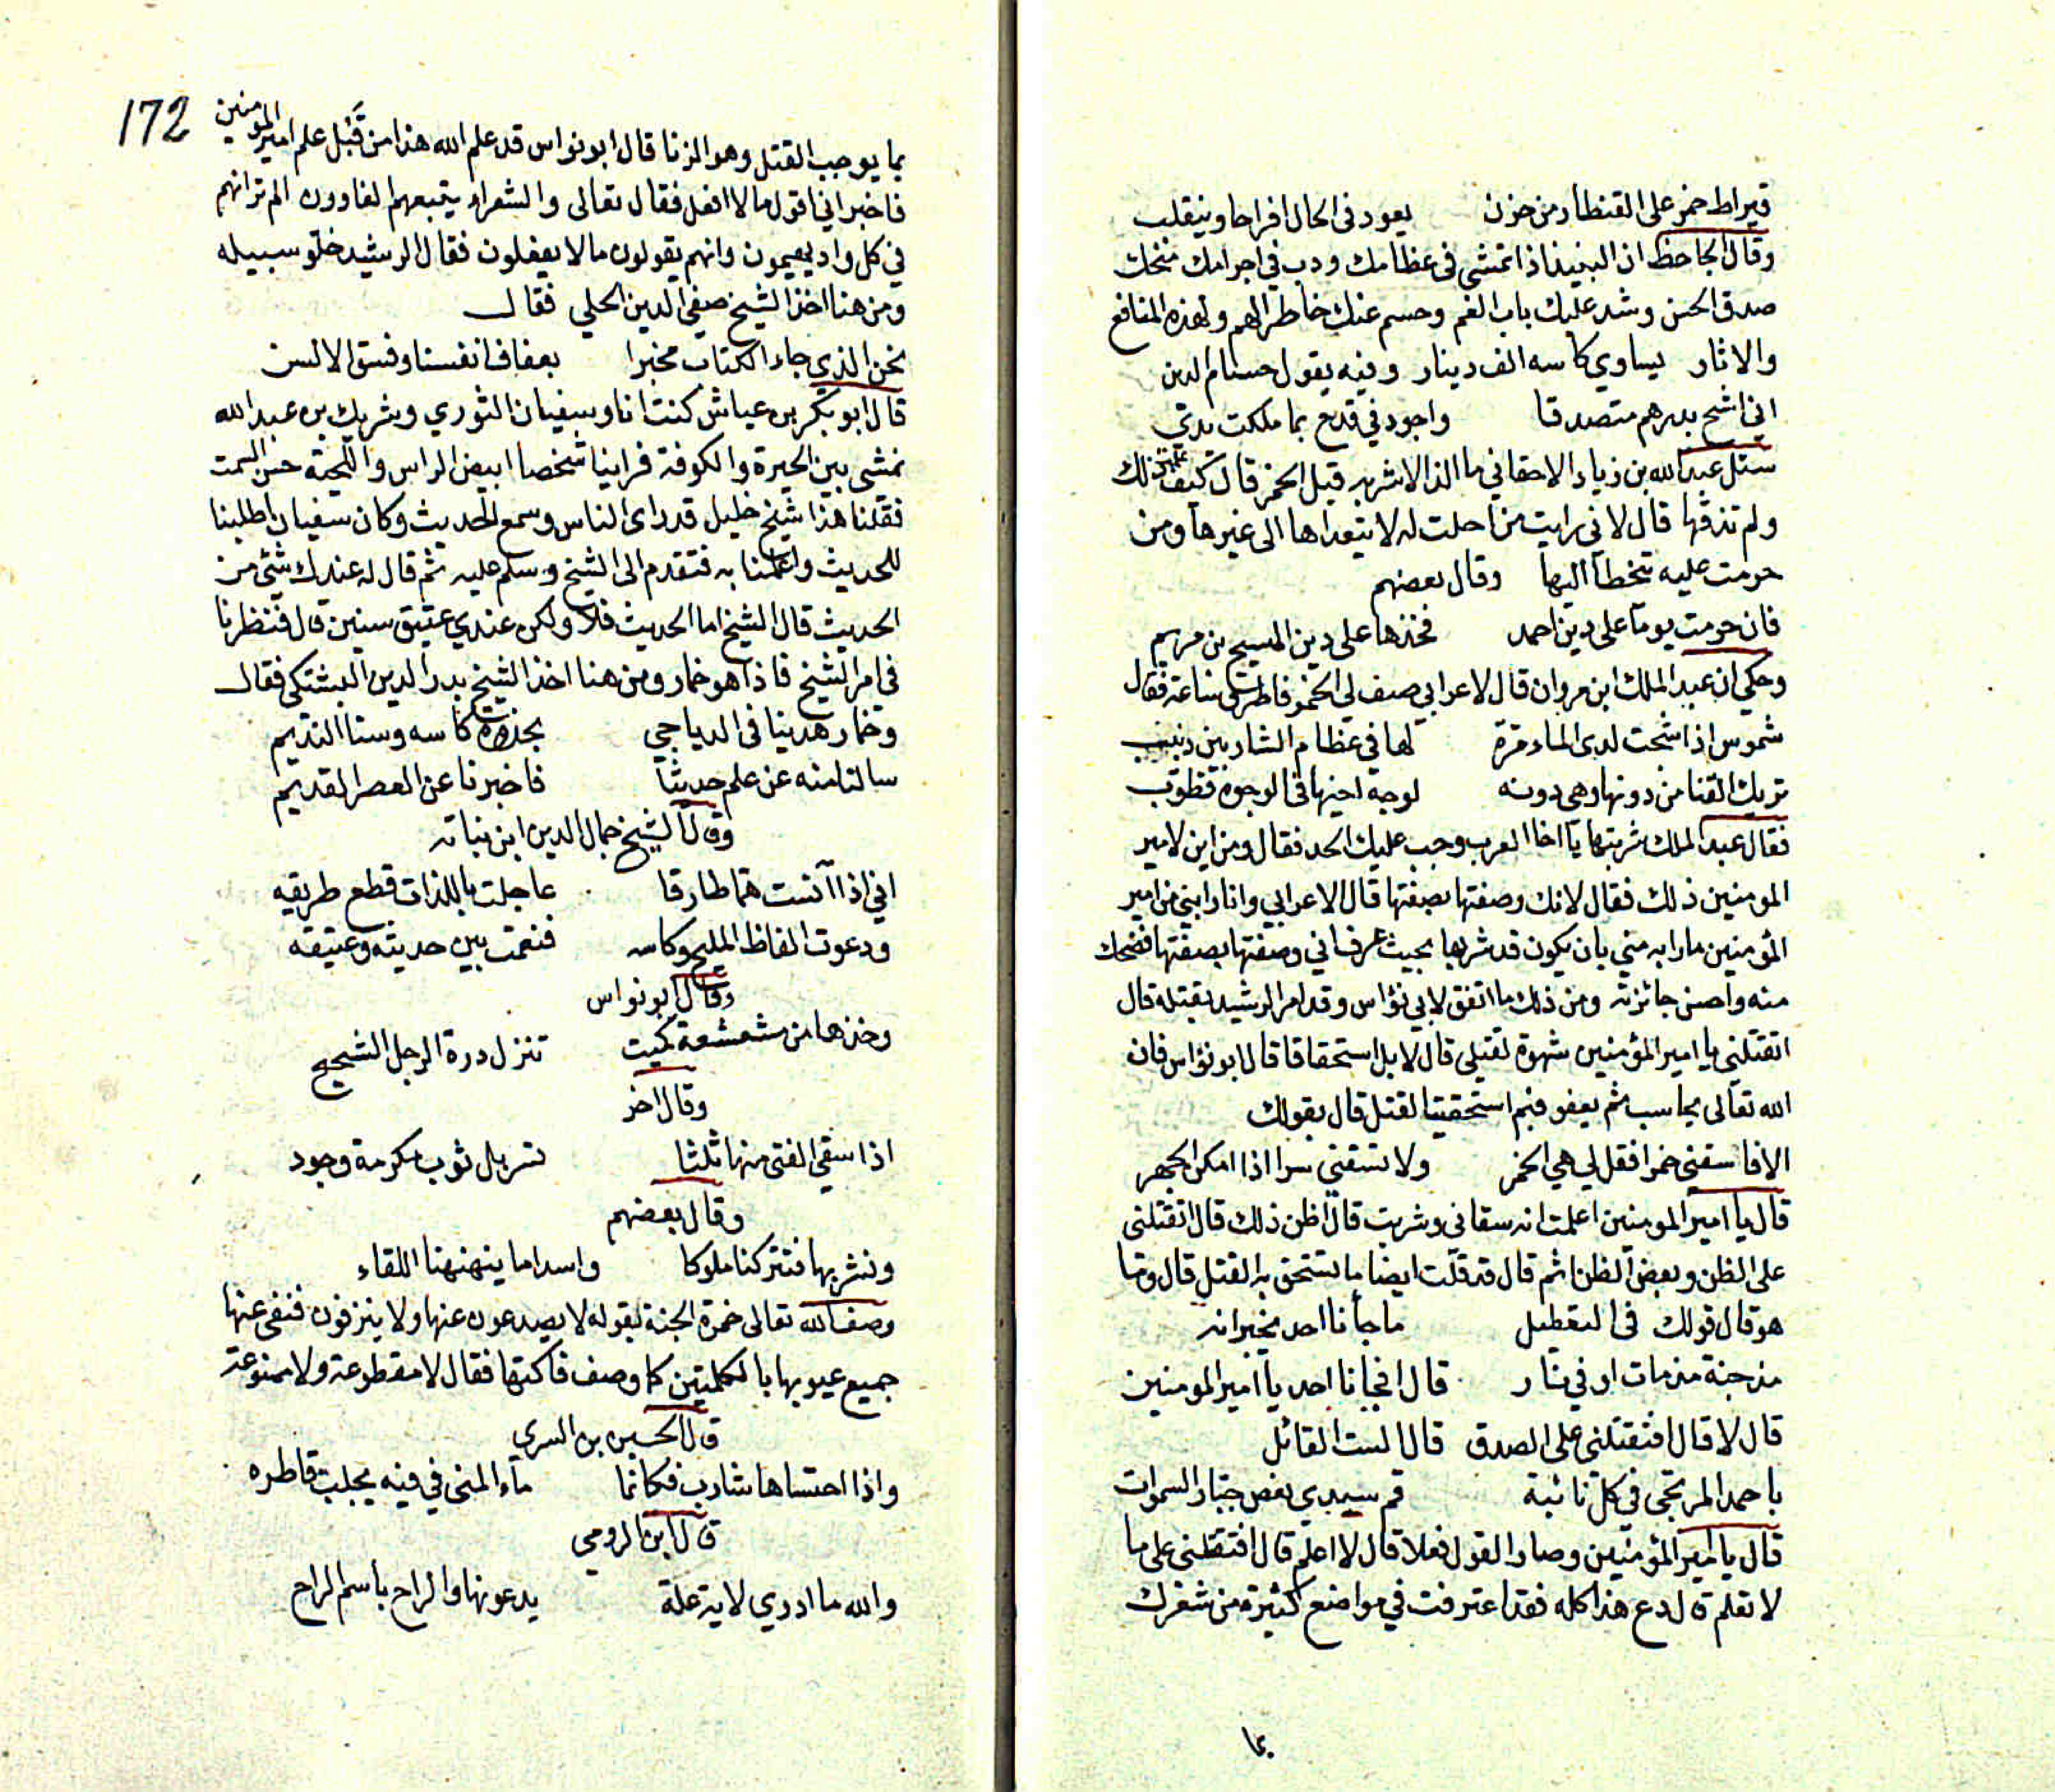 قيراط خمر على القنطار من حزن يعود في الحال افراحا وينقلب
وقال الجاحظ ان النبيذ اذا تمشى في عظامك ودب في اجرامك منحك
صدق الحس وشد عليك باب الغم وحسم عنك خاطر الهم ولهذه المنافع
والاثار يساوي كاسه الف دينار وفيه يقول حسام الدين
اني اشح بدرهم متصدقا واجود في قدح بما ملكت يدي
سئل عبد الله بن زياد الاحقاني ما الذ الاشربه قيل الخمر قال كيف علمت ذلك
ولم تذقها قال لاني رايت من احلت له لا يتعداها الى غيرها ومن
حرمت عليه يتخطا اليها وقال بعضهم
فان حرمت يوما على دين احمد فخذها على دين المسيح بن مريم
وحكي ان عبد الملك ابن مروان قال لاعرابي صف لي الخمر فاطرق ساعة فقال
شموس اذا شجت لدى الماء مرة لها في عظام الشاربين دبيب
تريك القذا من دونها وهي دونه لوجه اخيها في الوجوه قطوب
فقال عبد الملك شربتها يا اخا العرب وجب عليك الحد فقال ومن اين لامير
المومنين ذلك فقال لانك وصفتها بصفتها قال الاعرابي وانا رابني من امير
المؤمنين ما رابه مني بان يكون قد شربها بحيث عرف اني وصفتها بصفتها فضحك
منه واحسن جائزته ومن ذلك ما اتفق لابي نؤاس وقد امر الرشيد بقتله قال
اتقتلني يا امير المؤمنين شهوة لقتلي قال لا بل استحقاقا قال ابو نؤاس فان
الله تعالى يحاسب ثم يعفو فبم استحقيت القتل قال بقولك
الا فاسقني خمرا فقل لي هي الخمر ولا تسقني سرا اذا امكن الجهر
قال يا امير المومنين اعلمت انه سقاني وشربت قال اظن ذلك قال اتقتلني
على الظن وبعض الظن اثم قال قد قلت ايضا ما يستحق به القتل قال وما
هو قال قولك في التعطيل ما جأنا احد يخبر انه
مذ جنة مذ مات او في نار قال افجانا احد يا امير المومنين
قال لا قال افتقتلني على الصدق قال الست القائل
يا احمد المرتجى في كل نائبة قم سيدي نعص جبار السموات
قال يا امير المؤمنين وصار القول فعلا قال لا اعلم قال افتقتلني على ما
لا تعلم قال دع هذا كله فقد اعترفت في مواضع كثيرة من شعرك
بما
172
بما يوجب القتل وهو الزنا قال ابو نواس قد علم الله هذا من قبل علم امير المومنين
فاخبر اني اقول ما لا افعل فقال تعالى والشعراء يتبعهم الغاوون الم تر انهم
في كل واد يهيمون وانهم يقولون ما لا يفعلون فقال الرشيد خلو سبيله
ومن هنا اخذ الشيخ صفي الدين الحلي فقال
نحن الذي جاء الكتاب مخبرا بعفاف انفسنا وفسق الالسن
قال ابو بكر بن عياش كنت انا وسفيان الثوري وشريك بن عبد الله
نمشي بين الحيرة والكوفة فراينا شخصا ابيض الراس واللحية حسن السمت
فقلنا هذا شيخ جليل قد راى الناس وسمع الحديث وكان سفيان اطلبنا
للحديث واعلمنا به فتقدم الى الشيخ وسلم عليه ثم قال له عندك شئ من
الحديث قال الشيخ اما الحديث فلا ولكن عندي عتيق سنين قال فنظرنا
في امر الشيخ فاذا هو خمار ومن هنا اخذ الشيخ بدر الدين البشتكي فقال
وخمار هدينا في الدياجي بجذوة كاسه وسنا النديم
سالنا منه عن علم حديثا فاخبرنا عن العصر القديم
وقال الشيخ جمال الدين ابن نباته
اني اذا آنست هما طارقا عاجلت باللذات قطع طريقه
ودعوت الفاظ المليح وكاسه فنعمت بين حديثه وعتيقه
وقال ابو نواس
وخذها من مشعشعة كميت تنزل درة الرجل الشحيح
وقال اخر
اذا سقي الفتى منها ثلثا تسربل ثوب مكرمة وجود
وقال بعضهم
ونشربها فتتركنا ملوكا واسدا ما ينهنهنا اللقاء
وصف الله تعالى خمرة الجنة بقوله لا يصدعون عنها ولا ينزفون فنفى عنها
جميع عيوبها بالكلمتين كما وصف فاكهتها فقال لا مقطوعة ولا ممنوعة
قال الحسين بن السري
واذا احتساها شارب فكانما ماء المنى في فيه يجلب قاطره
قال ابن الرومي
والله ما ادري لاية علة يدعونها والراح باسم الراح